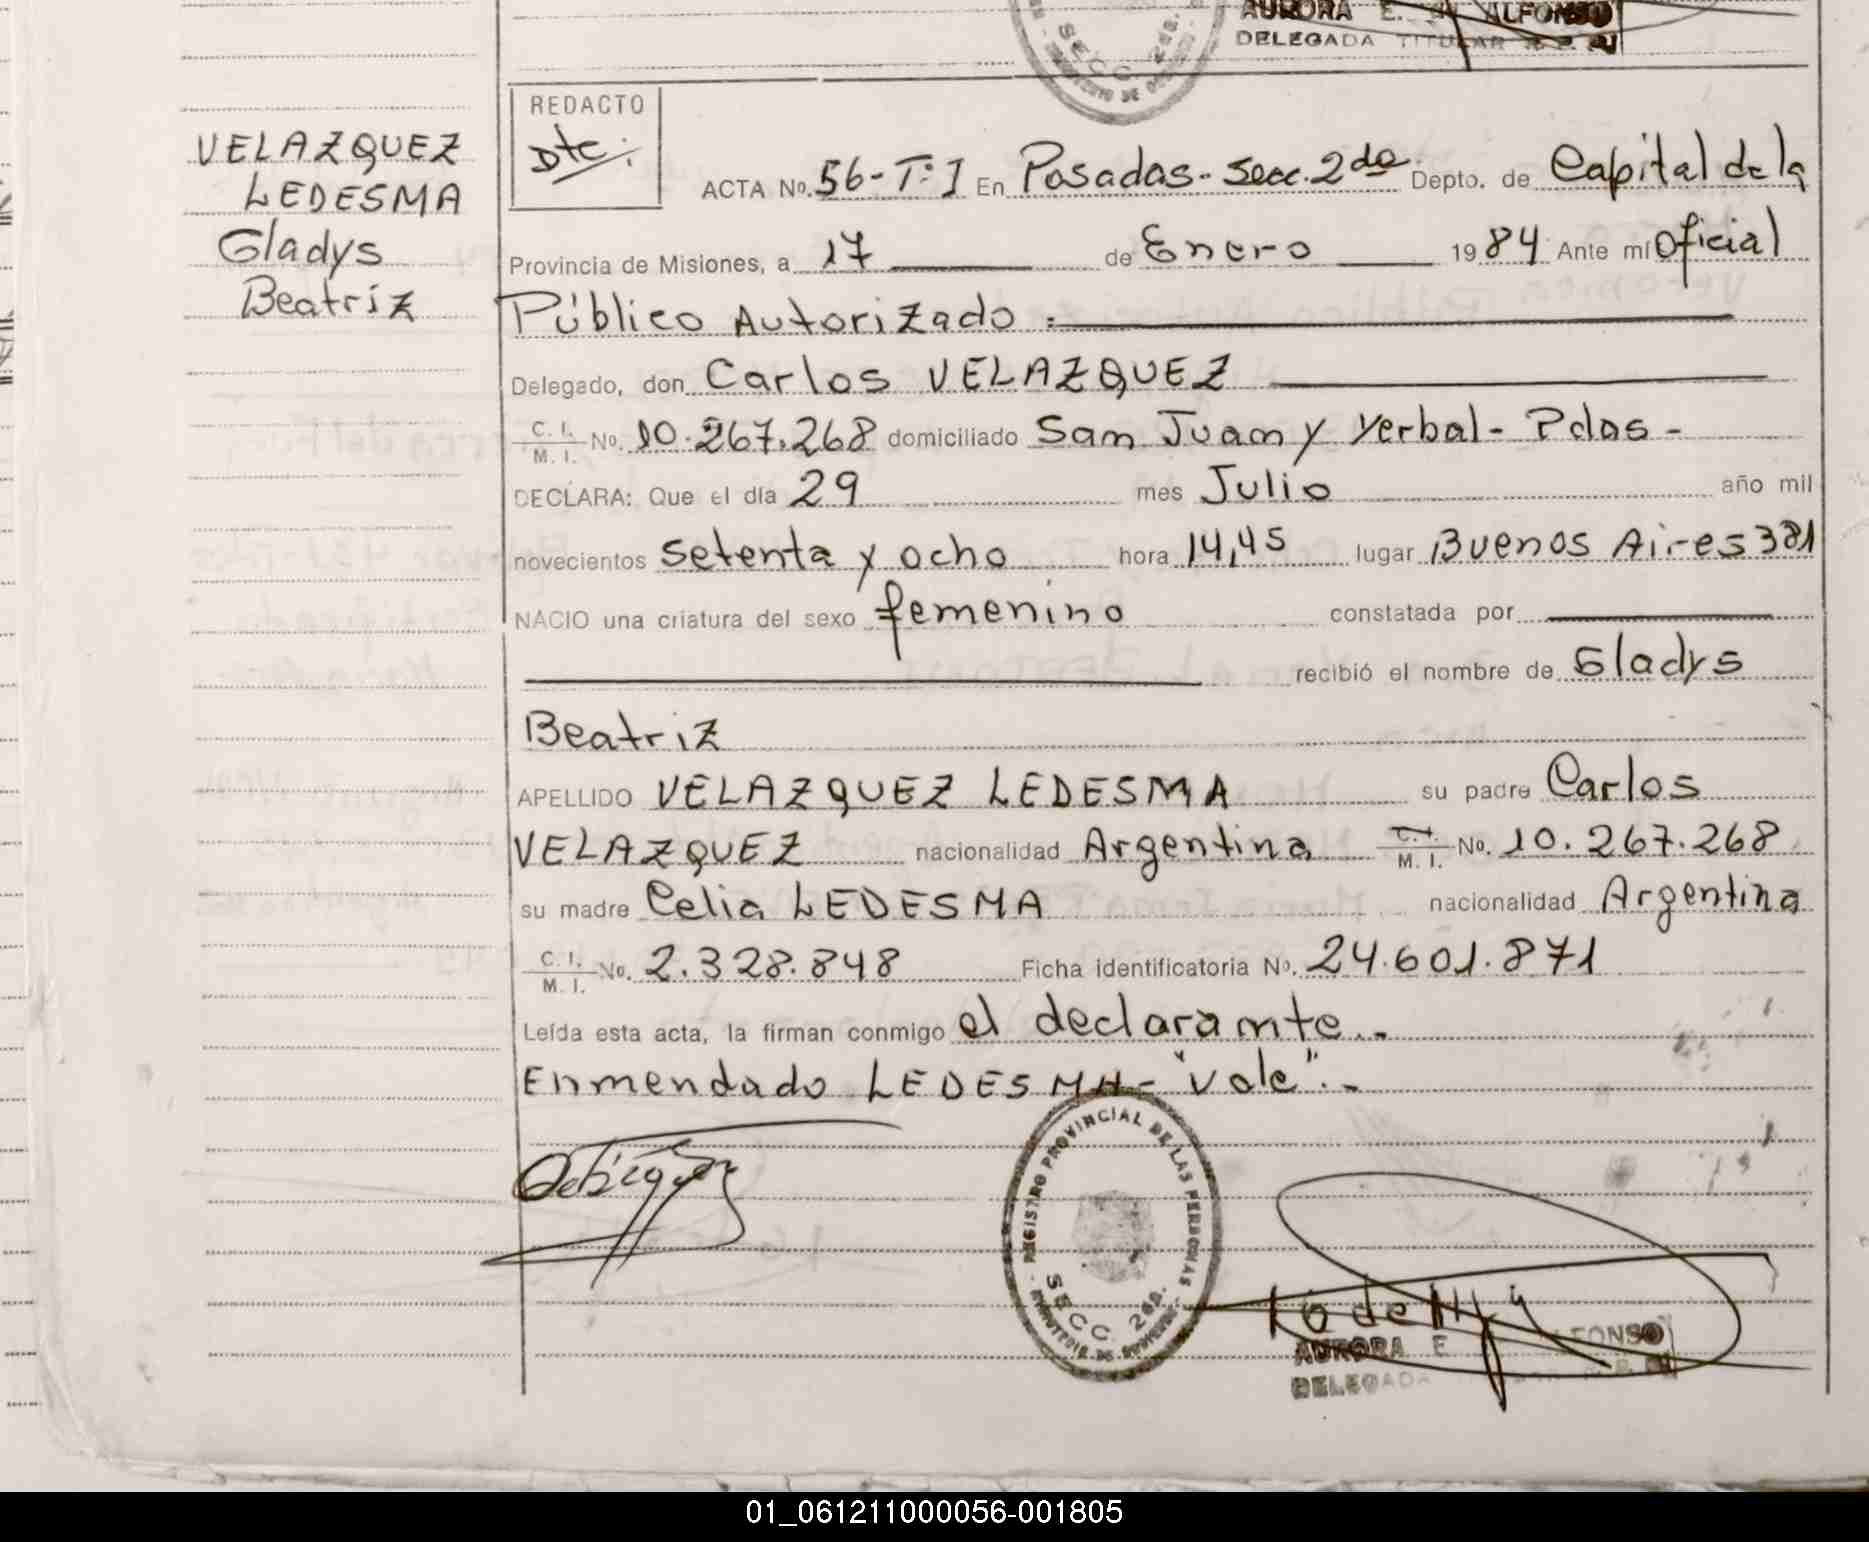 AURORA E. ALFONSO
DELEGADA TITULAR
SECC. 2da.
REDACTO
Dtc:
VELAZQUEZ
LEDESMA
Gladys
Beatriz
ACTA No. 56-T:I En Posadas-Secc. 2da Depto. de Capital de la
Provincia de Misiones, a 17 de Enero 1984 Ante mí Oficial
Público Autorizado.
Delegado, don Carlos VELAZQUEZ
C. I. M. I. No. 10.267.268 domiciliado San Juan y Yerbal - Pdas -
DECLARA: Que el día 29 mes Julio año mil
novecientos setenta y ocho hora 14,45 lugar Buenos Aires 381
NACIO una criatura del sexo femenino constatada por
recibió el nombre de Gladys
Beatriz
APELLIDO VELAZQUEZ LEDESMA su padre Carlos
VELAZQUEZ nacionalidad Argentina C.I. M. I. No. 10.267.268
su madre Celia LEDESMA nacionalidad Argentina
C. I. M. I. No. 2.328.848 Ficha identificatoria No. 24.601.871
Leída esta acta, la firman conmigo el declarante.-
Enmendado LEDESMA- "Vale".-
REGISTRO PROVINCIAL DE LAS PERSONAS
SECC. 2da.
AURORA E FONSO
DELEGADA
01_061211000056-001805